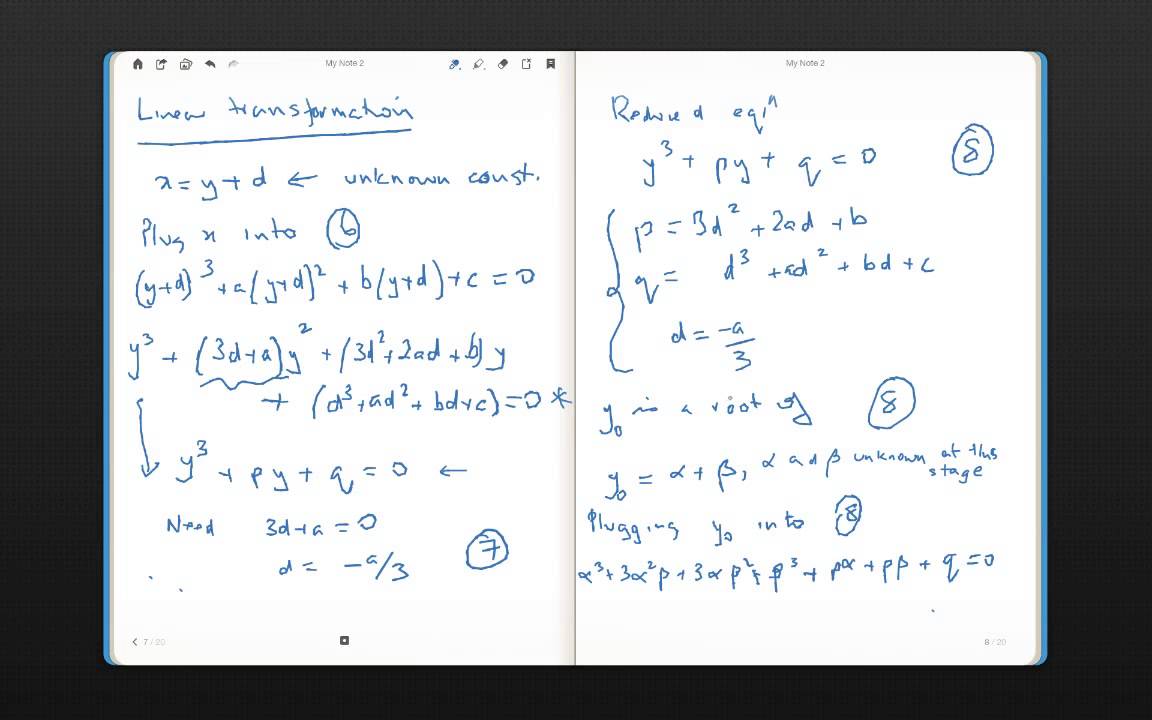 My Note 2
Linear transformation
x = y + d ← unknown const.
Plug x into ⑥
(y+d)³ + a(y+d)² + b(y+d) + c = 0
y³ + (3d+a)y² + (3d²+2ad+b)y
+ (d³+ad²+bd+c) = 0 *
y³ + py + q = 0 ←
Need 3d+a = 0
d = -a/3 ⑦
7 / 20
My Note 2
Reduced eqⁿ
y³ + py + q = 0 ⑧
p = 3d² + 2ad + b
q = d³ + ad² + bd + c
d = -a/3
y₀ is a root of ⑧
y₀ = α + β, α and β unknown at this stage
Plugging y₀ into ⑧
α³ + 3α²β + 3αβ² + β³ + pα + pβ + q = 0
8 / 20